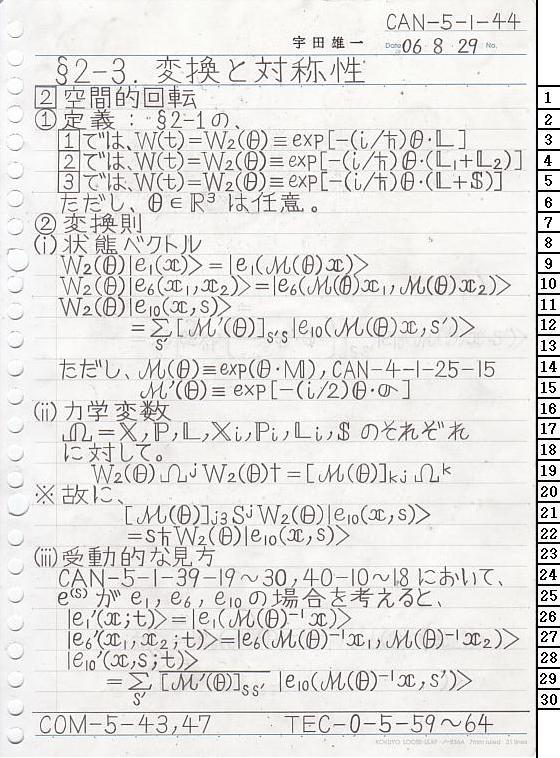 CAN-5-1-44
宇田雄一 Date 06 8 29 No.
§2-3. 変換と対称性
[2] 空間的回転
① 定義: §2-1の、
[1]では、W(t)=W₂(θ)≡exp[-(i/ħ)θ·𝕃]
[2]では、W(t)=W₂(θ)≡exp[-(i/ħ)θ·(𝕃₁+𝕃₂)]
[3]では、W(t)=W₂(θ)≡exp[-(i/ħ)θ·(𝕃+𝕊)]
ただし、θ∈ℝ³ は任意。
② 変換則
(i) 状態ベクトル
W₂(θ)|e₁(x)>=|e₁(M(θ)x)>
W₂(θ)|e₆(x₁,x₂)>=|e₆(M(θ)x₁,M(θ)x₂)>
W₂(θ)|e₁₀(x,s)>
=Σ_s' [M'(θ)]_s's |e₁₀(M(θ)x,s')>
ただし、M(θ)≡exp(θ·𝕄), CAN-4-1-25-15
M'(θ)≡exp[-(i/2)θ·σ]
(ii) 力学変数
Ω=𝕏,ℙ,𝕃,𝕏i,ℙi,𝕃i,𝕊 のそれぞれ
に対して。
W₂(θ)Ωʲ W₂(θ)†=[M(θ)]kj Ωᵏ
※ 故に、
[M(θ)]j3 Sʲ W₂(θ)|e₁₀(x,s)>
=sħW₂(θ)|e₁₀(x,s)>
(iii) 受動的な見方
CAN-5-1-39-19~30, 40-10~18 において、
e⁽ˢ⁾ が e₁, e₆, e₁₀ の場合を考えると、
|e₁'(x;t)>=|e₁(M(θ)⁻¹x)>
|e₆'(x₁,x₂;t)>=|e₆(M(θ)⁻¹x₁,M(θ)⁻¹x₂)>
|e₁₀'(x,s;t)>
=Σ_s' [M'(θ)]_ss' |e₁₀(M(θ)⁻¹x,s')>
COM-5-43,47 TEC-0-5-59~64
KOKUYO LOOSE-LEAF ノ-836A 7mm ruled 31 lines
1
2
3
4
5
6
7
8
9
10
11
12
13
14
15
16
17
18
19
20
21
22
23
24
25
26
27
28
29
30